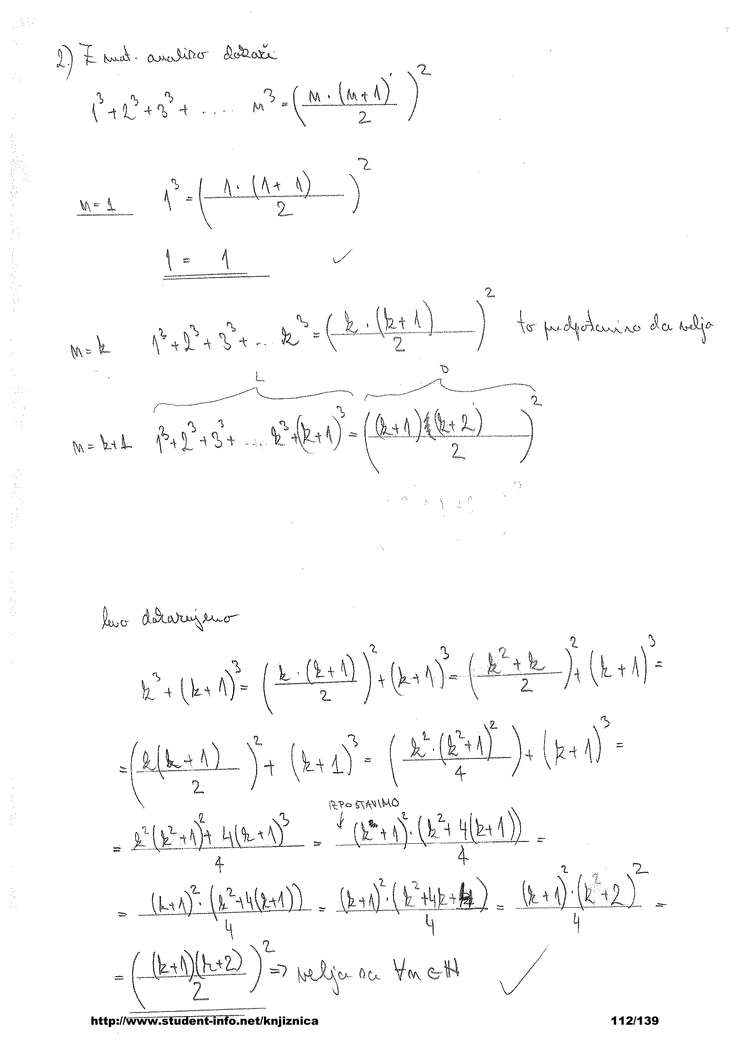 2.) Z mat. analizo dokaži
1³+2³+3³+ ..... n³=(n·(n+1)/2)²
n=1 1³=(1·(1+1)/2)²
1 = 1 ✓
n=k 1³+2³+3³+... k³=(k·(k+1)/2)² to predpostavimo da velja
L D
n=k+1 1³+2³+3³+.... k³+(k+1)³=((k+1)(k+2)/2)²
levo dokazujemo
k³+(k+1)³=(k·(k+1)/2)²+(k+1)³=(k²+k/2)²+(k+1)³=
=(k(k+1)/2)²+(k+1)³=(k²·(k²+1)²/4)+(k+1)³=
IZPOSTAVIMO
=k²(k²+1)²+4(k+1)³/4=(k+1)²·(k²+4(k+1))/4=
=(k+1)²·(k²+4(k+1))/4=(k+1)²·(k²+4k+4)/4=(k+1)²·(k²+2)²/4=
=((k+1)(k+2)/2)²=> velja za ∀n∈ℕ ✓
http://www.student-info.net/knjiznica 112/139